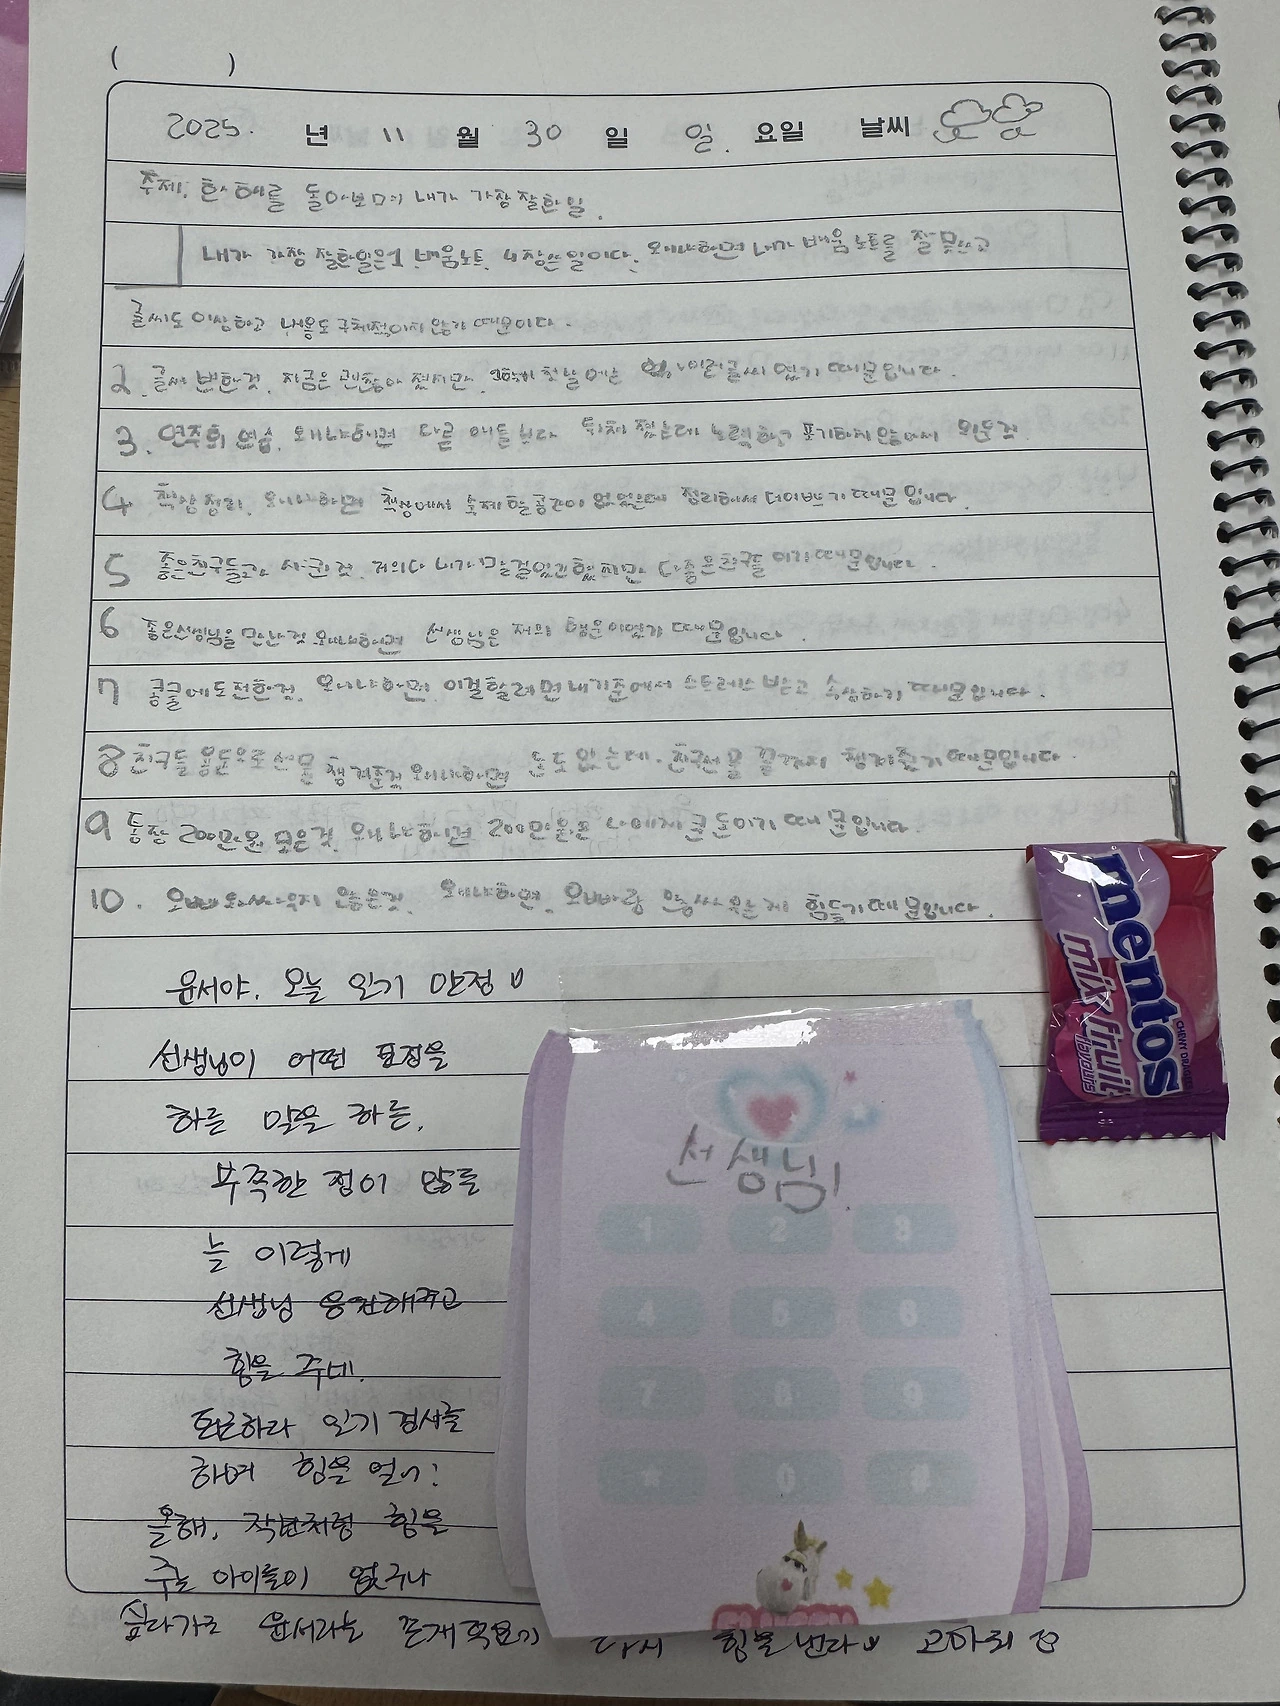 ( )
2025. 년 11 월 30 일 일. 요일 날씨
주제. 한해를 돌아보며 내가 가장 잘한일.
내가 가장 잘한일은 1. 배움노트 4장쓴일이다. 왜냐하면 내가 배움노트를 잘 못쓰고
글씨도 이상하고 내용도 구체적이지 않기 때문이다.
2. 글씨 변한것. 지금은 괜찮아 졌지만, 첫날에는 글씨 였기 때문입니다.
3. 연주회 연습. 왜냐하면 다른 애들보다 뒤쳐졌는데 노력하고 포기하지 않아서 외운것.
4 책상정리. 왜냐하면 책상에서 숙제 할공간이 없었는데 정리해서 더이쁘기 때문입니다.
5 좋은친구들과 사귄것. 저의다 내가말걸었긴했지만 다좋은친구들 이기때문입니다.
6 좋은선생님을 만난것 왜냐하면 선생님은 저의 행운이였기 때문입니다.
7 콩쿨에도전한것. 왜냐하면, 이걸할려면내기준에서 스트레스 받고 속상하기 때문입니다.
8 친구들 용돈으로 선물 챙겨준것 왜냐하면 돈도 없는데. 친구선물 끝까지 챙겨준기때문입니다
9 통장 200만원 모은것. 왜냐하면 200만원은 나에게 큰 돈이기 때문입니다.
10. 오빠와싸우지 않은것. 왜냐하면, 오빠랑 안싸우는게 힘들기때문입니다.
윤서야. 오늘 일기 만점
선생님이 어떤 표정을
하든 말을 하든,
부족한 점이 많든
늘 이렇게
선생님 응원해주고
힘을 주네.
퇴근하라 일기 검사를
하며 힘을 얻네!
올해, 작년처럼 힘을
주는 아이들이 없구나
싶다가도 윤서라는 존재 힘을 낸다 고마워
선생님!
1 2 3
4 5 6
7 8 9
* 0 #
mentos
mix fruit
flavours
CHEWY DRAGEES